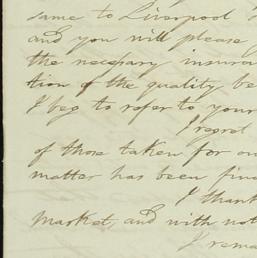 same to Liverpool
and you will please
the necessary insura
tion of the quality be
I beg to refer to your
I regret
of those taken for
matter has been fin
I thank
market, and with not
I rema